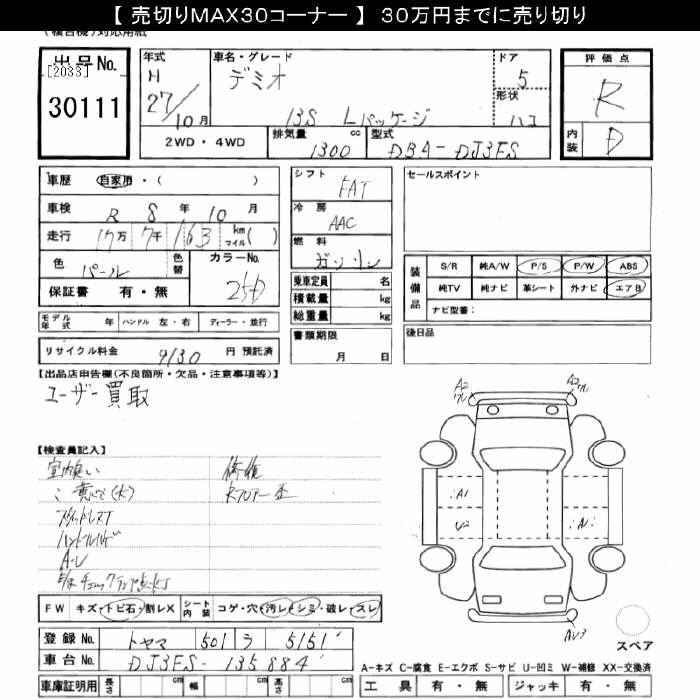 【 売切りMAX30コーナー 】 30万円までに売り切り
(複合機)対応用紙
出品No.
[2033]
30111
年式
H
27/10月
車名・グレード
デミオ
13S Lパッケージ
ドア
5
形状
ハコ
評価点
R
内装
D
2WD・4WD
排気量 1300 cc
型式 DBA-DJ3FS
車歴 自家用・( )
車検 R 8 年 10 月
走行 17万 7千 163 km マイル( )
色 パール 色替
カラーNo. 25D
保証書 有・無
シフト FAT
冷房 AAC
燃料 ガソリン
乗車定員 名
積載量 kg
総重量 kg
セールスポイント
装備品
S/R 純A/W P/S P/W ABS
純TV 純ナビ 革シート 外ナビ エアB
ナビ型番:
モデル年式 年 ハンドル 左・右 ディーラー・並行
書類期限 月 日
後日品
リサイクル料金 9130 円 預託済
【出品店申告欄(不良箇所・欠品・注意事項等)】
ユーザー買取
【検査員記入】
室内臭い
修復
RフロアーA
A2
A2
A1
U2
AU3
FW キズ・トビ石・割レX
シート内装 コゲ・穴・汚レ・シミ・破レ・スレ
登録No. トヤマ 501 ラ 5151
車台No. DJ3FS-135884
スペア
A-キズ C-腐食 E-エクボ S-サビ U-凹ミ W-補修 XX-交換済
車庫証明用 長さ cm 幅 cm 高さ cm
工具 有・無 ジャッキ 有・無